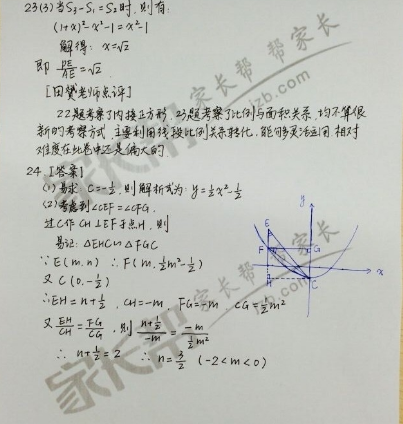 23(3) 当S₃-S₁=S₂时,则有:
(1+x)²-x²-1=x²-1
解得: x=√2
即 DE/AE=√2.
[田赟老师点评]
22题考察了内接正方形,23题考察了比例与面积关系,均不算很
新的考察方式,主要利用线段比例关系转化,能够灵活运用.相对
难度在此卷中还是偏大的.
24.[答案]
(1)易求 C=-½,则解析式为: y=½x²-½
(2)考虑到∠CEF=∠CFG.
过C作CH⊥EF于点H,则
易证: △EHC∽△FGC
∵E(m,n) ∴F(m,½m²-½)
又 C(0,-½)
∴EH=n+½, CH=-m, FG=-m, CG=½m²
又 EH/CH=FG/CG, 则 (n+½)/(-m)=(-m)/(½m²)
∴ n+½=2 ∴ n=3/2 (-2<m<0)
y
E
F
G
x
H
C
家长帮
家长帮
jzb.com
家长帮
jzb.com